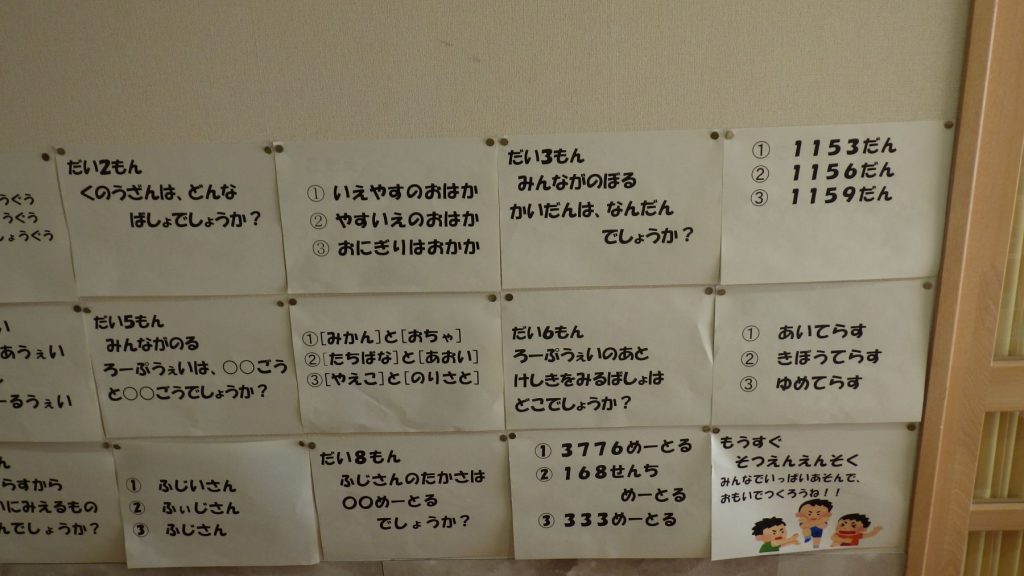 うぐう
うぐう
しょうぐう
だい2もん
くのうざんは、どんな
ばしょでしょうか？
① いえやすのおはか
② やすいえのおはか
③ おにぎりはおかか
だい3もん
みんながのぼる
かいだんは、なんだん
でしょうか？
① 1153だん
② 1156だん
③ 1159だん
い
あうぇい
ーるうぇい
だい5もん
みんながのる
ろーぷうぇいは、○○ごう
と○○ごうでしょうか？
①[みかん]と[おちゃ]
②[たちばな]と[あおい]
③[やえこ]と[のりさと]
だい6もん
ろーぷうぇいのあと
けしきをみるばしょは
どこでしょうか？
① あいてらす
② きぼうてらす
③ ゆめてらす
ん
らすから
いにみえるもの
んでしょうか？
① ふじいさん
② ふぃじさん
③ ふじさん
だい8もん
ふじさんのたかさは
○○めーとる
でしょうか？
① 3776めーとる
② 168せんち
めーとる
③ 333めーとる
もうすぐ
そつえんえんそく
みんなでいっぱいあそんで、
おもいでつくろうね！！